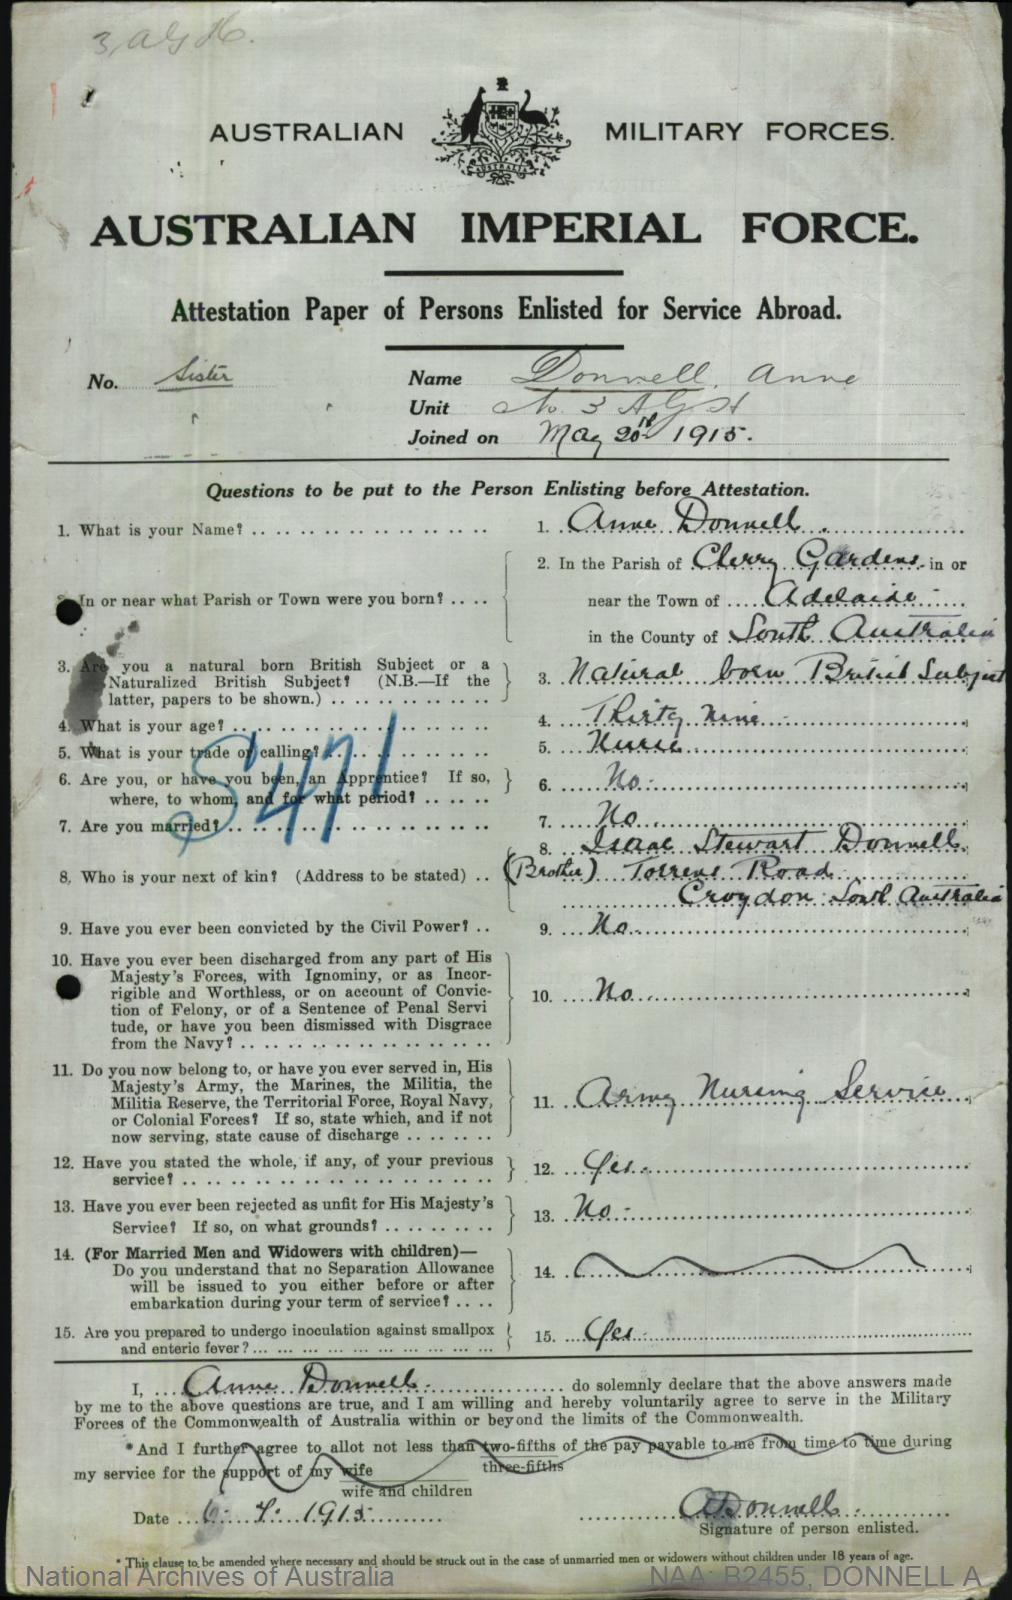 3 AGH.
AUSTRALIAN MILITARY FORCES.
AUSTRALIA
AUSTRALIAN IMPERIAL FORCE.
Attestation Paper of Persons Enlisted for Service Abroad.
No. Sister Name Donnell. Anne
Unit No. 3 A G H
Joined on May 20th 1915.
Questions to be put to the Person Enlisting before Attestation.
1. What is your Name? 1. Anne Donnell.
2. In the Parish of Cherry Gardens in or
In or near what Parish or Town were you born? near the Town of Adelaide
in the County of South Australia
3. Are you a natural born British Subject or a
Naturalized British Subject? (N.B.—If the 3. Natural born British Subject
latter, papers to be shown.)
4. What is your age? 4. Thirty Nine
5. What is your trade or calling? 5. Nurse
6. Are you, or have you been, an Apprentice? If so, 6. No.
where, to whom, and for what period?
S471
7. Are you married? 7. No
8. Isaac Stewart Donnell
8. Who is your next of kin? (Address to be stated) (Brother) Torrens Road
Croydon South Australia
9. Have you ever been convicted by the Civil Power? 9. No.
10. Have you ever been discharged from any part of His
Majesty's Forces, with Ignominy, or as Incor-
rigible and Worthless, or on account of Convic- 10. No.
tion of Felony, or of a Sentence of Penal Servi
tude, or have you been dismissed with Disgrace
from the Navy?
11. Do you now belong to, or have you ever served in, His
Majesty's Army, the Marines, the Militia, the
Militia Reserve, the Territorial Force, Royal Navy, 11. Army Nursing Service
or Colonial Forces? If so, state which, and if not
now serving, state cause of discharge
12. Have you stated the whole, if any, of your previous 12. Yes.
service?
13. Have you ever been rejected as unfit for His Majesty's 13. No.
Service? If so, on what grounds?
14. (For Married Men and Widowers with children)—
Do you understand that no Separation Allowance 14.
will be issued to you either before or after
embarkation during your term of service?
15. Are you prepared to undergo inoculation against smallpox 15. Yes.
and enteric fever?
I, Anne Donnell. do solemnly declare that the above answers made
by me to the above questions are true, and I am willing and hereby voluntarily agree to serve in the Military
Forces of the Commonwealth of Australia within or beyond the limits of the Commonwealth.
*And I further agree to allot not less than two-fifths of the pay payable to me from time to time during
three-fifths
my service for the support of my wife
wife and children
Date 1915 ADonnell.
Signature of person enlisted.
* This clause to be amended where necessary and should be struck out in the case of unmarried men or widowers without children under 18 years of age.
National Archives of Australia NAA: B2455, DONNELL A